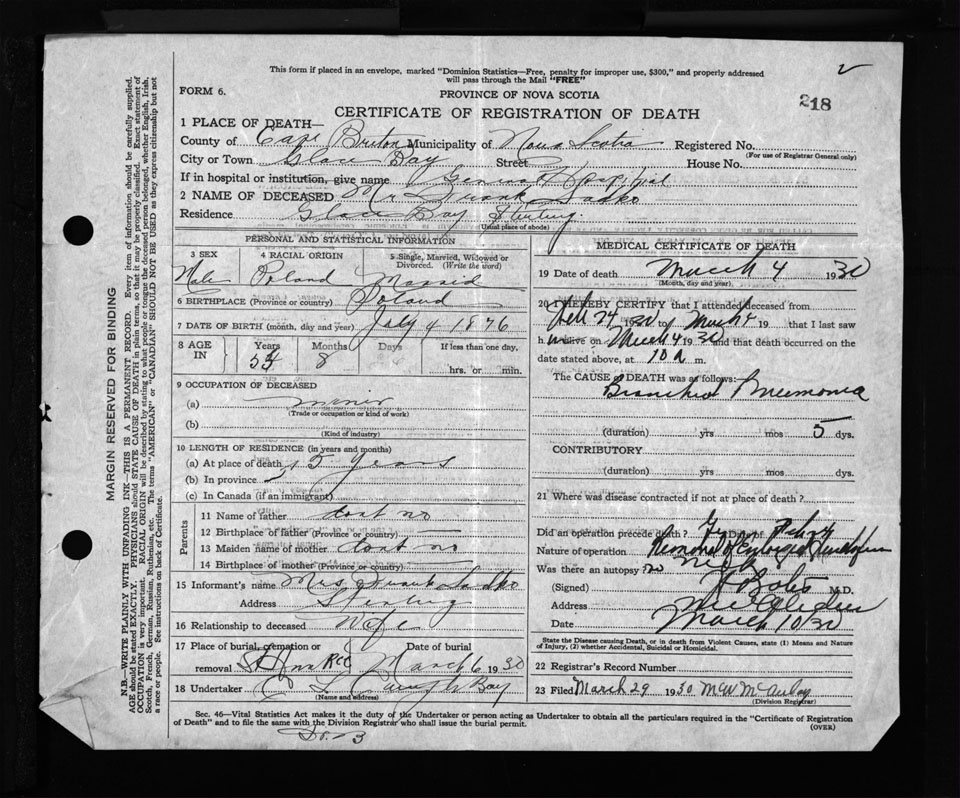 This form if placed in an envelope, marked "Dominion Statistics—Free, penalty for improper use, $300," and properly addressed
will pass through the Mail "FREE"
FORM 6.
PROVINCE OF NOVA SCOTIA
218
CERTIFICATE OF REGISTRATION OF DEATH
1 PLACE OF DEATH—
County of Cape Breton Municipality of Nova Scotia Registered No.
(For use of Registrar General only)
City or Town Glace Bay Street House No.
If in hospital or institution, give name General Hospital
2 NAME OF DECEASED Mr Frank Sadko
Residence Glace Bay Sterling
(Usual place of abode)
PERSONAL AND STATISTICAL INFORMATION
3 SEX
4 RACIAL ORIGIN
5 Single, Married, Widowed or Divorced. (Write the word)
Male Poland Marrid
6 BIRTHPLACE (Province or country) Poland
7 DATE OF BIRTH (month, day and year) July 4 1876
8 AGE IN
Years Months Days If less than one day,
53 8
hrs. or min.
9 OCCUPATION OF DECEASED
(a) miner
(Trade or occupation or kind of work)
(b)
(Kind of industry)
10 LENGTH OF RESIDENCE (in years and months)
(a) At place of death 15 years
(b) In province
(c) In Canada (if an immigrant)
Parents
11 Name of father dont no
12 Birthplace of father (Province or country)
13 Maiden name of mother dont no
14 Birthplace of mother (Province or country)
15 Informant's name Mrs Frank Sadko
Address Sterling
16 Relationship to deceased Wife
17 Place of burial, cremation or removal St Ann Date of burial March 6 1930
18 Undertaker Bay
(Name and address)
MEDICAL CERTIFICATE OF DEATH
19 Date of death March 4 1930
(Month, day and year)
20 I HEREBY CERTIFY that I attended deceased from
Feb 24 1930 to March 4 19 that I last saw
h alive on March 4 1930 and that death occurred on the
date stated above, at 10 a m.
The CAUSE OF DEATH was as follows:
Bronchial Pneumonia
(duration) yrs mos 5 dys.
CONTRIBUTORY
(duration) yrs mos dys.
21 Where was disease contracted if not at place of death?
Did an operation precede death? Date of
Nature of operation Removal of Enlarged
Was there an autopsy? no neck
(Signed) M.D.
Address
Date March 10/30
State the Disease causing Death, or in death from Violent Causes, state (1) Means and Nature
of Injury, (2) whether Accidental, Suicidal or Homicidal.
22 Registrar's Record Number
23 Filed March 29 1930 McW McAulay
(Division Registrar)
Sec. 46—Vital Statistics Act makes it the duty of the Undertaker or person acting as Undertaker to obtain all the particulars required in the "Certificate of Registration
of Death" and to file the same with the Division Registrar who shall issue the burial permit.
(OVER)
MARGIN RESERVED FOR BINDING
N.B.—WRITE PLAINLY WITH UNFADING INK—THIS IS A PERMANENT RECORD. Every item of information should be carefully supplied.
AGE should be stated EXACTLY. PHYSICIANS should STATE CAUSE OF DEATH in plain terms, so that it may be properly classified. Exact statement of
OCCUPATION is very important. RACIAL ORIGIN will be described by stating to what people, race or tongue the deceased person belonged, whether English, Irish,
Scotch, French, German, Russian, Ruthenian, etc. The terms "AMERICAN" or "CANADIAN" SHOULD NOT BE USED as they express citizenship but not
a race or people. See instructions on back of Certificate.